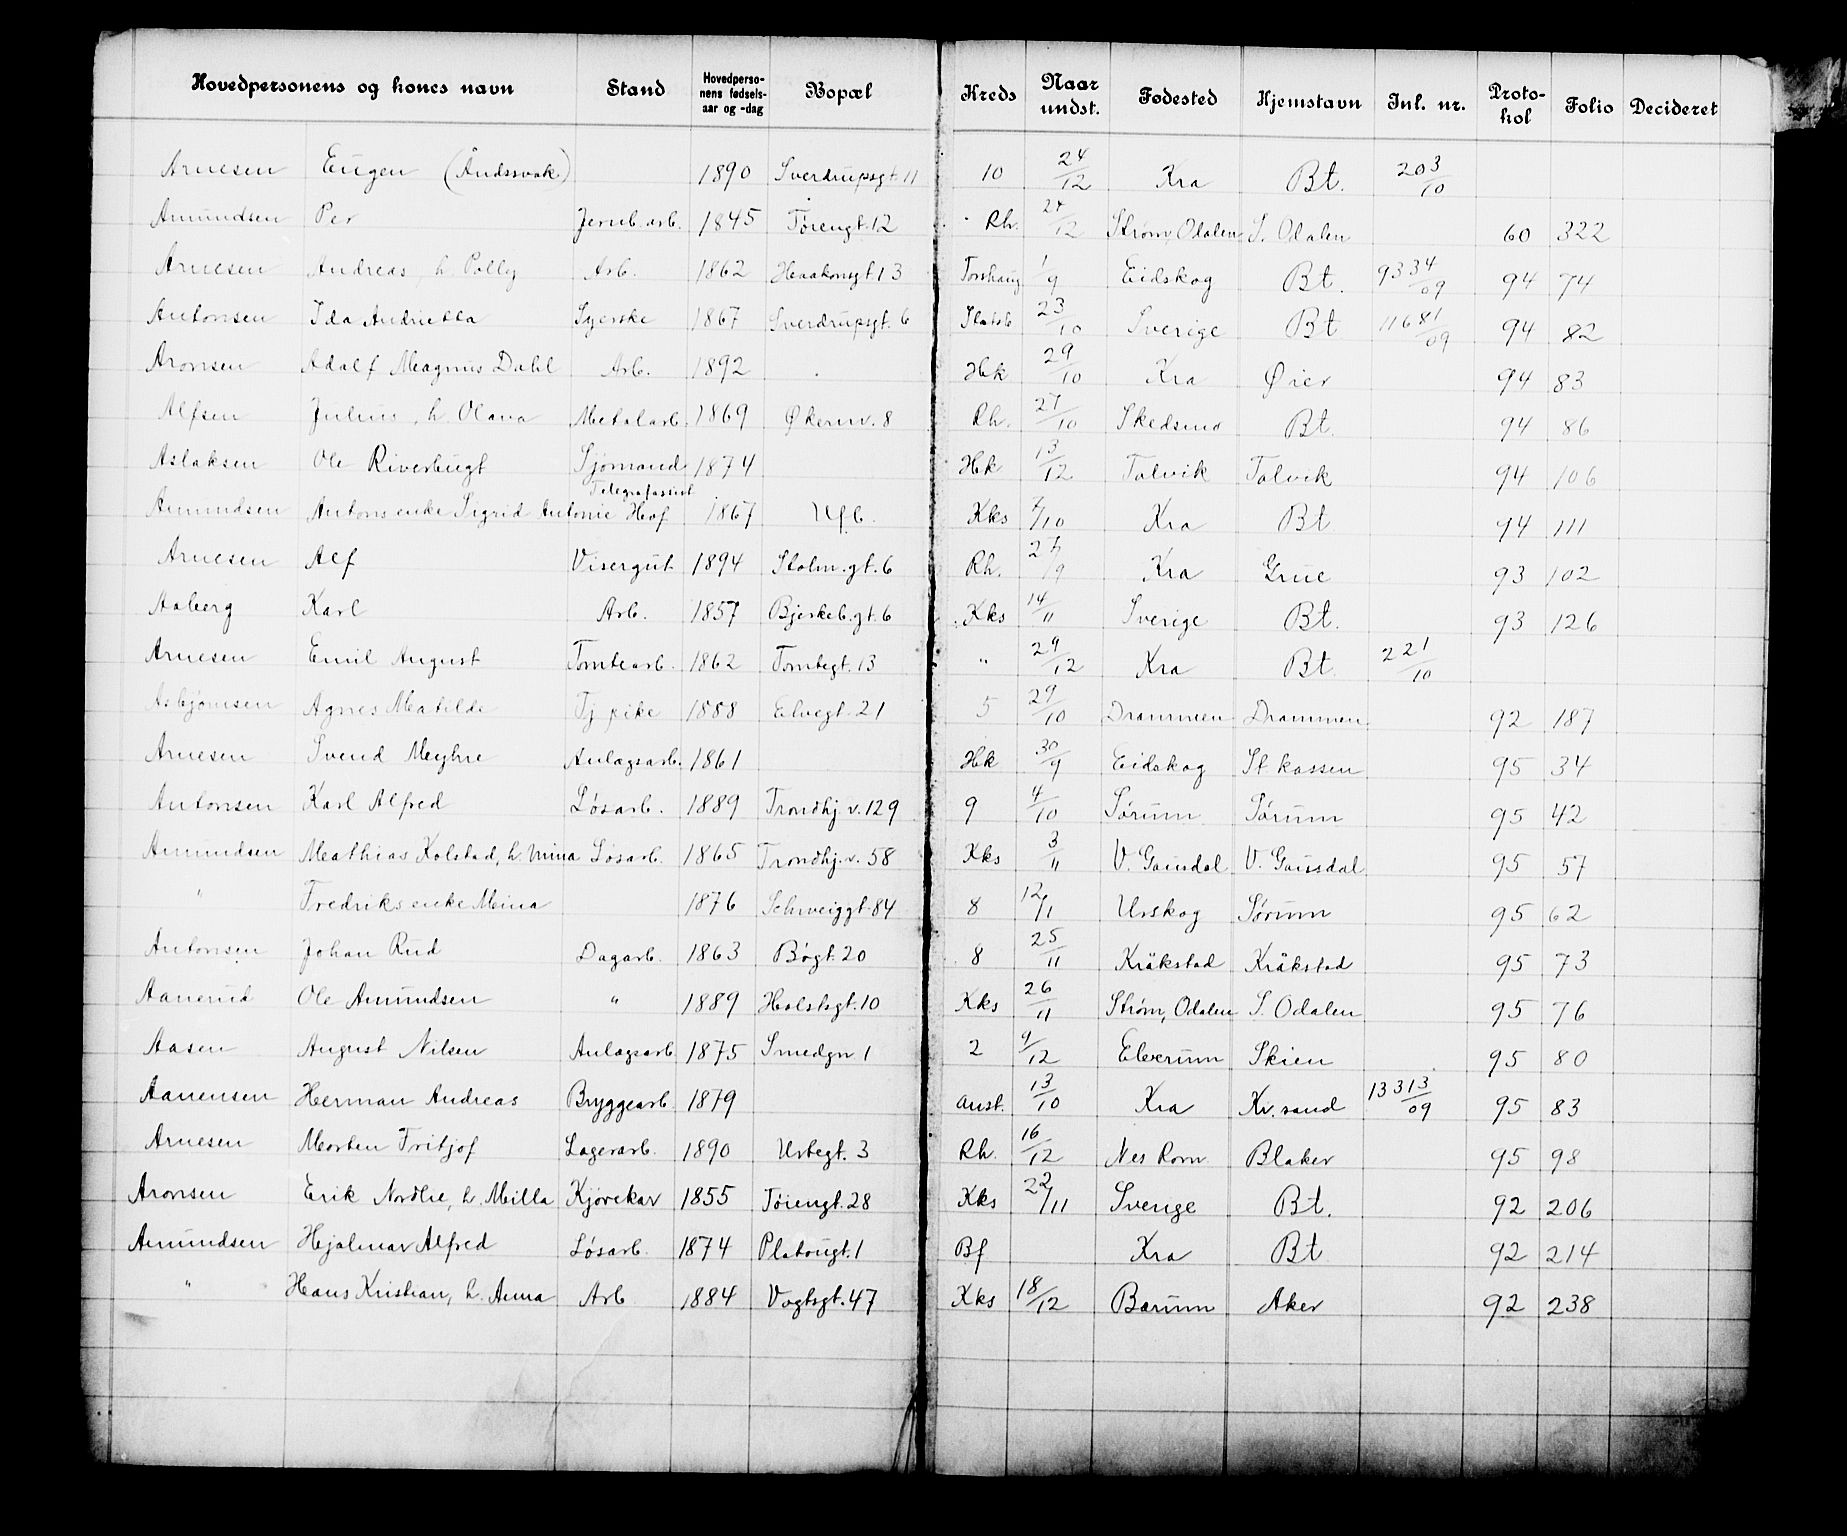 Hovedpersonens og hones navn Stand Hovedperso-nens fødsels-aar og -dag Bopæl Kreds Naar undst. Fødested Hjemstavn Inl. nr. Proto-hol Folio Decideret
Arnesen Eugen (Åndssvak) 1890 Sverdrupsgt. 11 10 24/12 Kra Bt. 203/10
Amundsen Per Jernb. arb. 1845 Tøiengt. 12 Rh. /12 Strøm, Odalen S. Odalen 60 322
Arnesen Andreas, h. Polly Arb. 1862 Haakonsgt. 13 Torshaug 1/9 Eidskog Bt. 9334/09 94 74
Antonsen Ida Andrietta Syerske 1867 Sverdrupsgt. 6 23/10 Sverige Bt 11681/09 94 82
Aronsen Adalf Magnus Dahl Arb. 1892 Hk 29/10 Kra Øier 94 83
Alfsen Julius, h. Olava Metalarb. 1869 Økernv. 8 Rh. 27/10 Skedsmo Bt. 94 86
Aslaksen Ole Riverbugt Sjømand 1874 Hk 13/12 Talvik Talvik 94 106
Telegrafassist
Amundsen Antons enke Sigrid Antonie Hof 1867 Ufb. Kks /10 Kra Bt 94 111
Arnesen Alf Visergut 1894 Stolm.gt. 6 Rh. /9 Kra Grue 93 102
Aaberg Karl Arb. 1857 Bjerkeb.gt. 6 Kks 14/11 Sverige Bt. 93 126
Arnesen Emil August Tomtearb. 1862 Tomtegt. 13 " 29/12 Kra Bt. 221/10
Asbjørnsen Agnes Matilde Tj pike 1888 Elvegt. 21 5 29/10 Drammen Drammen 92 187
Arnesen Svend Myhre Anlagsarb. 1861 Hk 30/9 Eidskog St. kassen 95 34
Antonsen Karl Alfred Løsarb. 1889 Trondhj. v. 129 9 4/10 Sørum Sørum 95 42
Amundsen Mathias Kolstad, h. Mina Løsarb. 1865 Trondhj. v. 58 Kks 3/11 V. Gausdal V. Gausdal 95 57
" Fredriks enke Mina 1876 Schweiggt. 84 8 12/11 Urskog Sørum 95 62
Antonsen Johan Rud Dagarb. 1863 Bøgt. 20 8 25/11 Kråkstad Kråkstad 95 73
Aanerud Ole Amundsen " 1889 Holstsgt. 10 Kks 26/11 Strøm, Odalen S. Odalen 95 76
Aasen August Nilsen Anlagsarb. 1875 Smedgn 1 2 9/12 Elverum Skien 95 80
Aanensen Herman Andreas Bryggearb. 1879 anst. 13/10 Kra Kr. sand 13313/09 95 83
Arnesen Morten Fritjof Lagerarb. 1890 Urtegt. 3 Rh. 16/12 Nes Rom. Blaker 95 98
Aronsen Erik Nordlie, h. Milla Kjørekar 1855 Tøiengt. 28 Kks 22/11 Sverige Bt. 92 206
Amundsen Hjalmar Alfred Løsarb. 1874 Platougt. 1 Bf Kra Bt 92 214
" Hans Kristian, h. Anna Arb 1884 Vogtsgt. 47 Kks 18/12 Bærum Aker 92 238